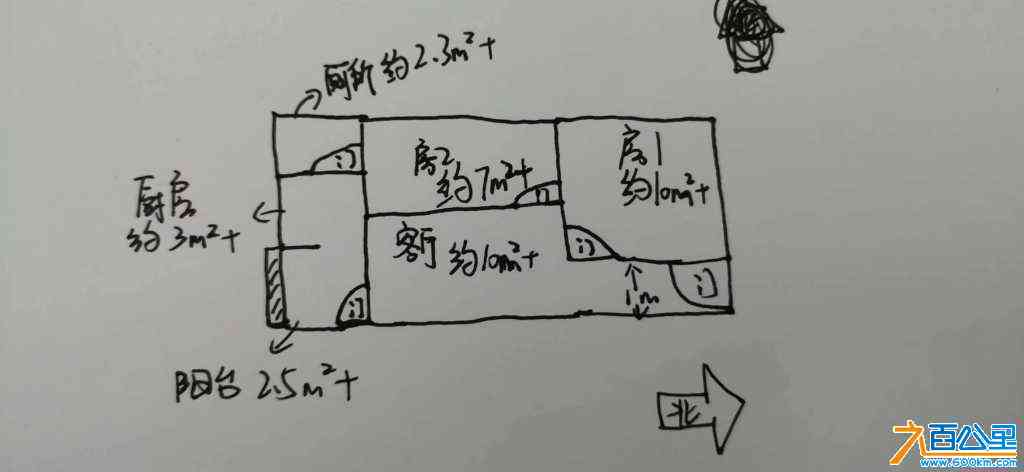 厕所 约2.3m²+
房2
约7m²+
房1
约10m²+
门
门
厨房
约3m²+
客厅 约10m²+
门
门
门
1m
阳台 2.5m²+
北
九百公里
www.600km.com